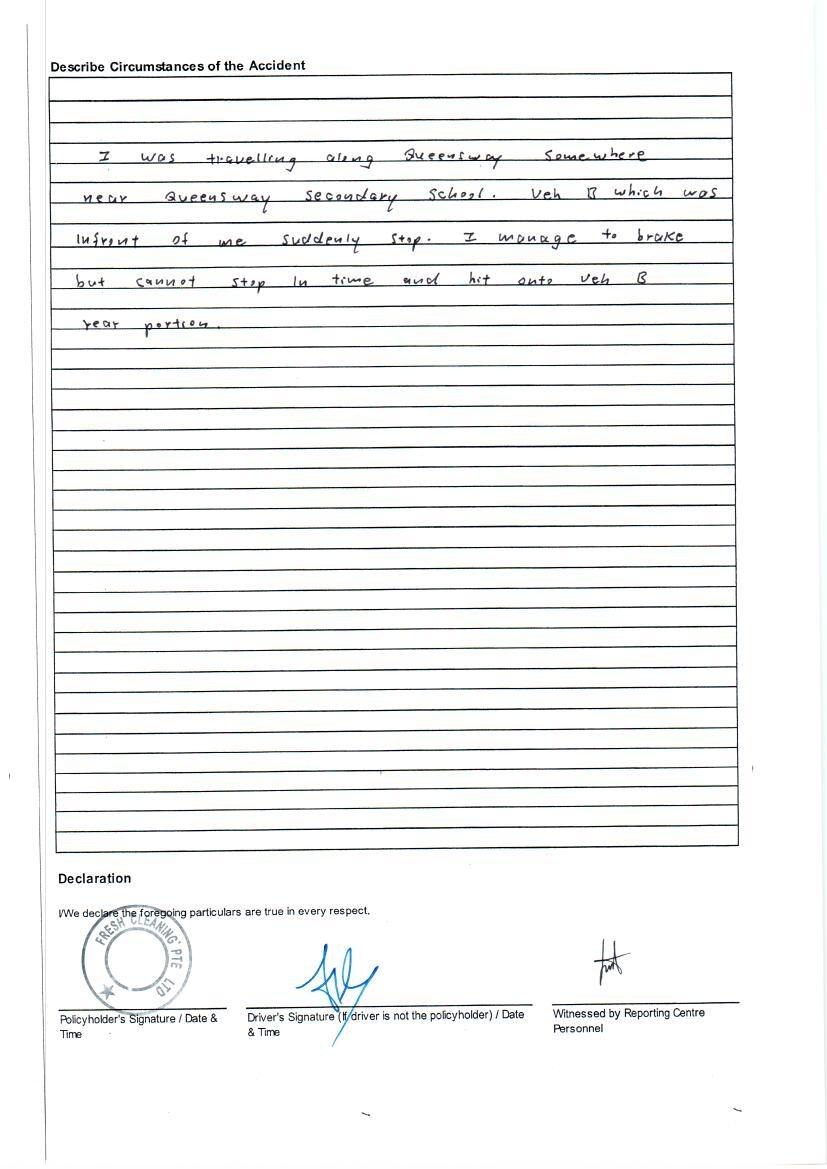 Describe Circumstances of the Accident
I was travelling along Queensway somewhere
near Queensway secondary school. Veh B which was
infront of me suddenly stop. I manage to brake
but cannot stop in time and hit onto veh B
rear portion.
Declaration
I/We declare the foregoing particulars are true in every respect.
FRESH CLEANING PTE LTD
Policyholder's Signature / Date &
Time
Driver's Signature (If driver is not the policyholder) / Date
& Time
Witnessed by Reporting Centre
Personnel